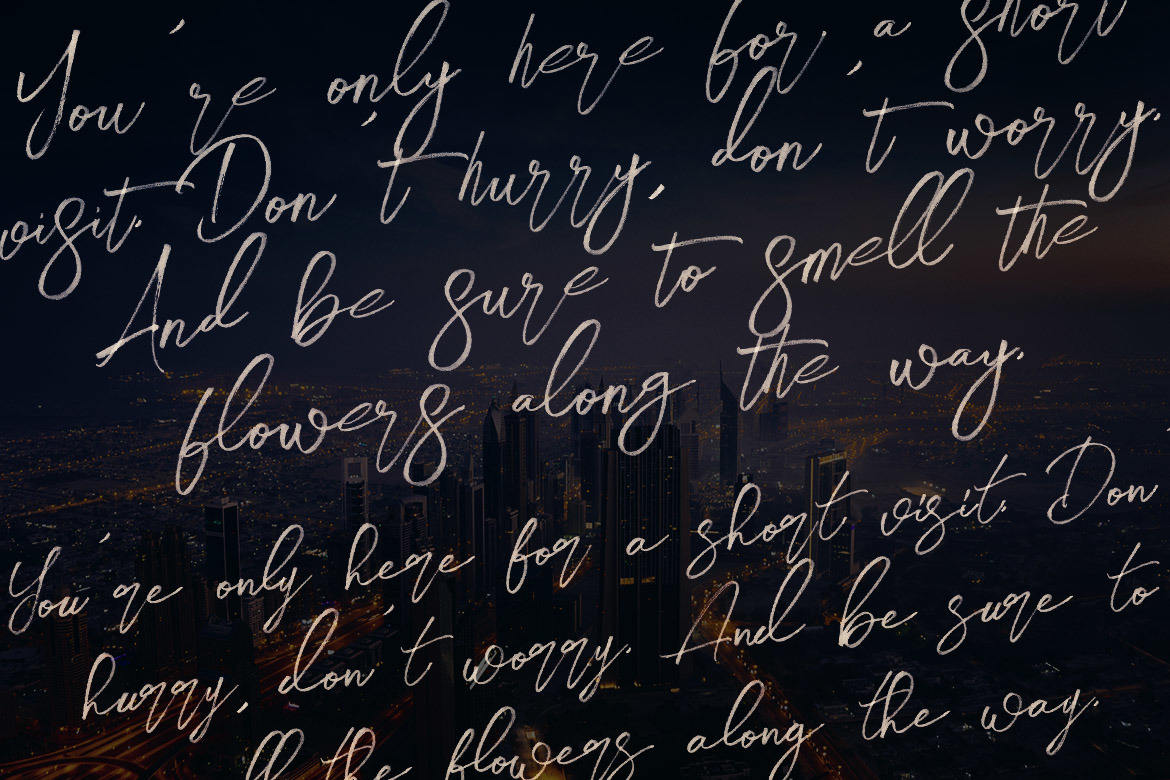 You're only here for a short
visit. Don't hurry, don't worry.
And be sure to smell the
flowers along the way.
You're only here for a short visit. Don'
hurry, don't worry. And be sure to
ll the flowers along the way.